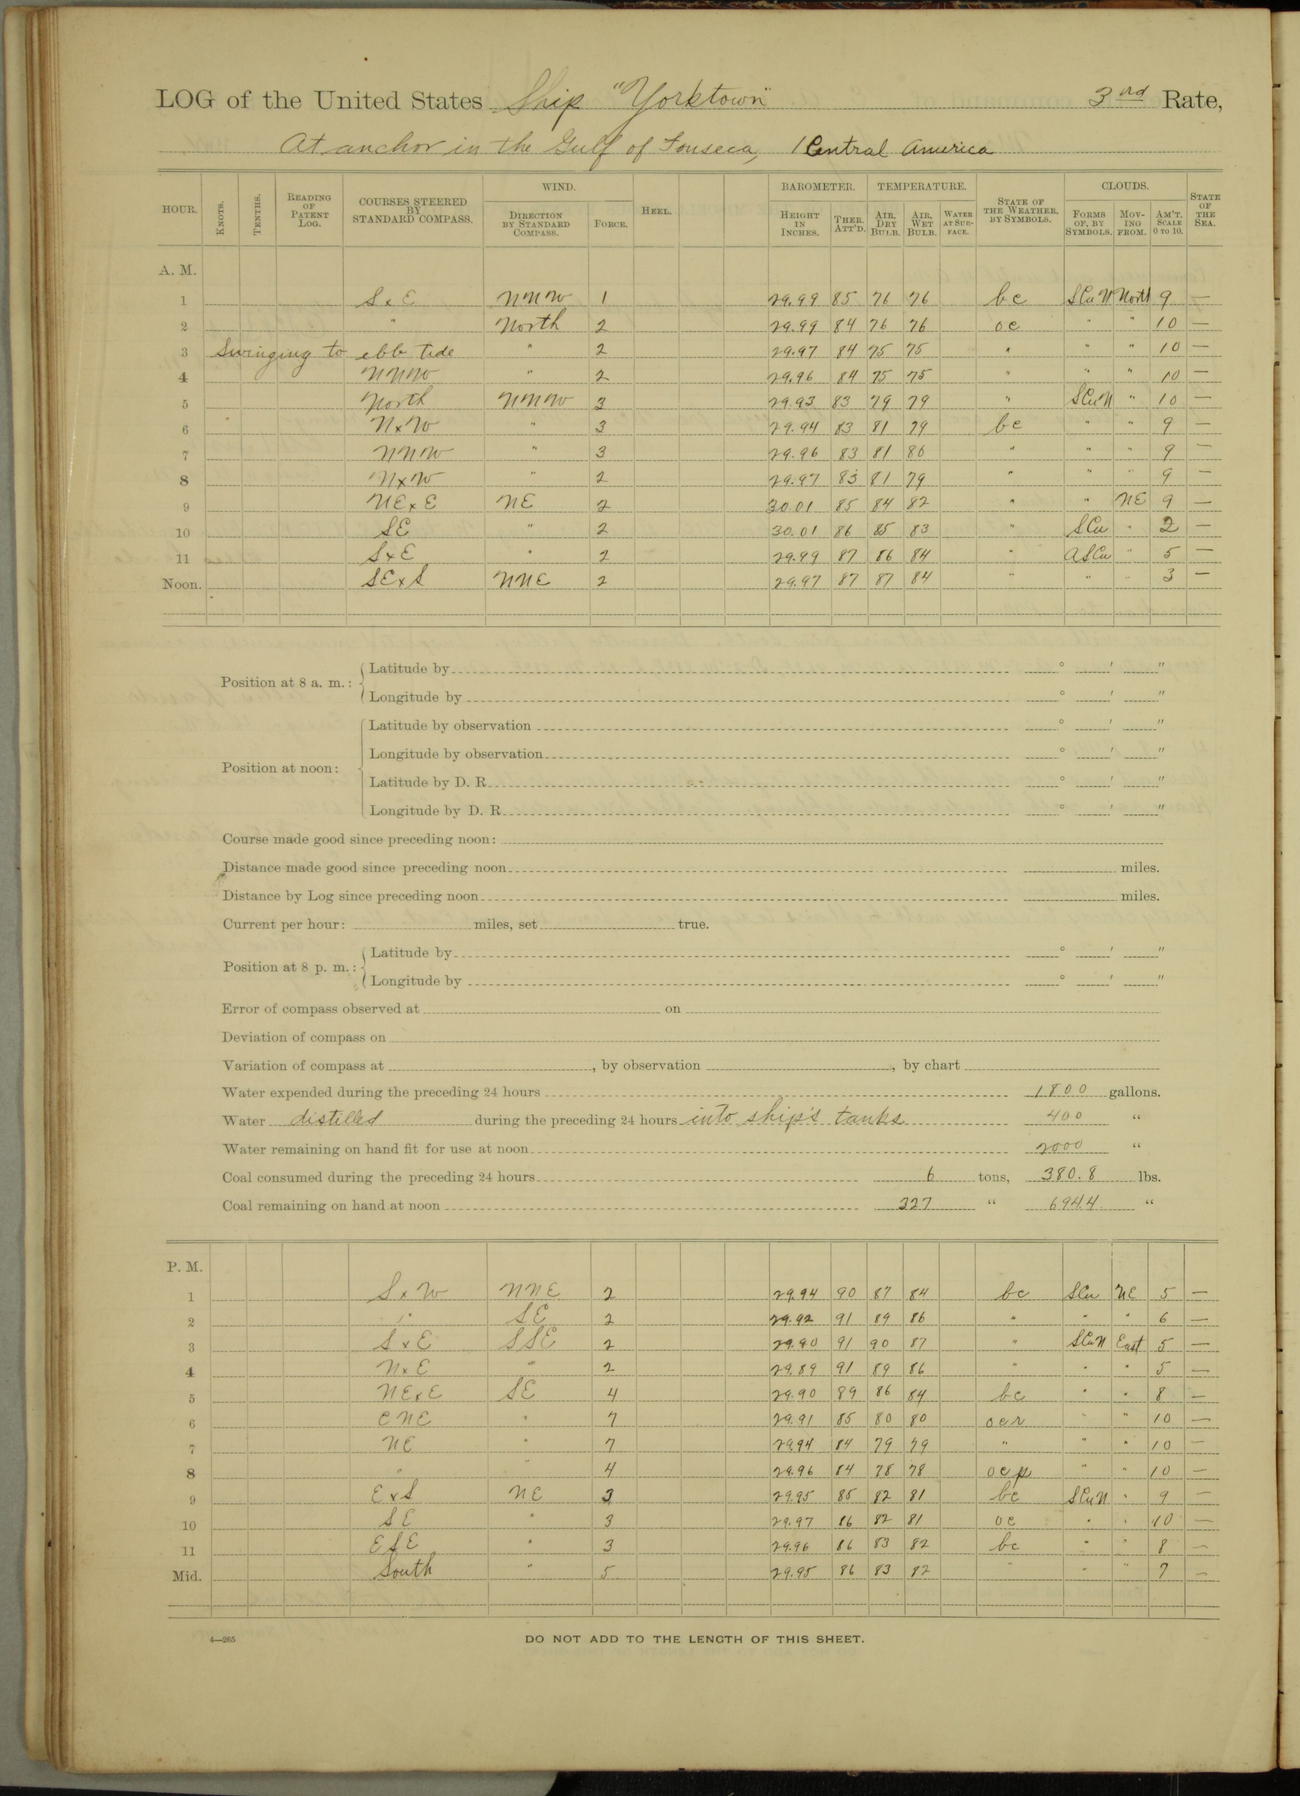 LOG of the United States Ship "Yorktown" 3rd Rate,
At anchor in the Gulf of Fonseca, Central America
HOUR. KNOTS. TENTHS. READING OF PATENT LOG. COURSES STEERED BY STANDARD COMPASS. WIND. DIRECTION BY STANDARD COMPASS. FORCE. HEEL. BAROMETER. HEIGHT IN INCHES. THER. ATT'D. TEMPERATURE. AIR, DRY BULB. AIR, WET BULB. WATER AT SURFACE. STATE OF THE WEATHER, BY SYMBOLS. CLOUDS. FORMS OF, BY SYMBOLS. MOVING FROM. AM'T. SCALE 0 TO 10. STATE OF THE SEA.
A. M.
1 SxE NNW 1 29.99 85 76 76 bc SCuN North 9 —
2 " North 2 29.99 84 76 76 oc " " 10 —
3 Swinging to ebb tide " 2 29.97 84 75 75 " " " 10 —
4 NNW " 2 29.96 84 75 75 " " " 10 —
5 North NNW 3 29.93 83 79 79 " SCuN " 10 —
6 NxW " 3 29.94 83 81 79 bc " " 9 —
7 NNW " 3 29.96 83 81 80 " " " 9 —
8 NxW " 2 29.97 83 81 79 " " " 9 —
9 NExE NE 2 30.01 85 84 82 " " NE 9 —
10 SE " 2 30.01 86 85 83 " SCu " 2 —
11 SxE " 2 29.99 87 86 84 " ASCu " 5 —
Noon. SExS NNE 2 29.97 87 87 84 " " " 3 —
Position at 8 a. m.: Latitude by ° ' "
Longitude by ° ' "
Position at noon: Latitude by observation ° ' "
Longitude by observation ° ' "
Latitude by D. R. ° ' "
Longitude by D. R. ° ' "
Course made good since preceding noon:
Distance made good since preceding noon miles.
Distance by Log since preceding noon miles.
Current per hour: miles, set true.
Position at 8 p. m.: Latitude by ° ' "
Longitude by ° ' "
Error of compass observed at on
Deviation of compass on
Variation of compass at , by observation , by chart
Water expended during the preceding 24 hours 1800 gallons.
Water distilled during the preceding 24 hours into ship's tanks 400 "
Water remaining on hand fit for use at noon 2000 "
Coal consumed during the preceding 24 hours 6 tons, 380.8 lbs.
Coal remaining on hand at noon 327 " 694.4 "
P. M.
1 SxW NNE 2 29.94 90 87 84 bc SCu NE 5 —
2 " SE 2 29.92 91 89 86 " " " 6 —
3 SxE SSE 2 29.90 91 90 87 " SCuN East 5 —
4 NxE " 2 29.89 91 89 86 " " " 5 —
5 NExE SE 4 29.90 89 86 84 bc " " 8 —
6 ENE " 7 29.91 85 80 80 ocr " " 10 —
7 NE " 7 29.94 84 79 79 " " " 10 —
8 " " 4 29.96 84 78 78 ocp " " 10 —
9 ExS NE 3 29.95 85 82 81 bc SCuN " 9 —
10 SE " 3 29.97 86 82 81 oc " " 10 —
11 ESE " 3 29.96 86 83 82 bc " " 8 —
Mid. South " 5 29.95 86 83 82 " " " 7 —
4—265 DO NOT ADD TO THE LENGTH OF THIS SHEET.